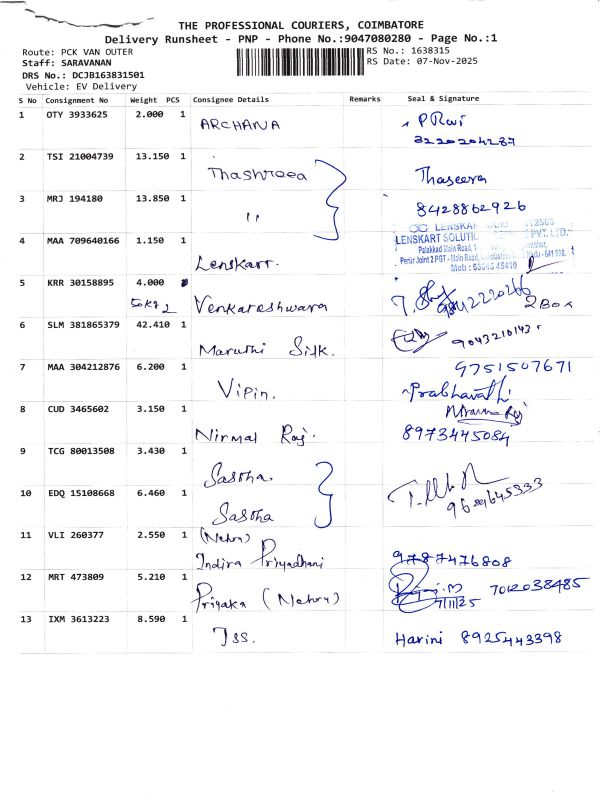 THE PROFESSIONAL COURIERS, COIMBATORE
Delivery Runsheet - PNP - Phone No.:9047080280 - Page No.:1
Route: PCK VAN OUTER
RS No.: 1638315
Staff: SARAVANAN
RS Date: 07-Nov-2025
DRS No.: DCJB163831501
Vehicle: EV Delivery
S No Consignment No Weight PCS Consignee Details Remarks Seal & Signature
1 OTY 3933625 2.000 1 ARCHANA P Ravi
8220204287
2 TSI 21004739 13.150 1 Thashreea Thaseera
3 MRJ 194180 13.850 1 " 8428862926
4 MAA 709640166 1.150 1 Lenskart. LENSKART SOLUTIONS PVT. LTD.
Palakkad Main Road,
Perur Joint 2 PGT - Main Road, - 641 008.
Mob : 63645 45410
5 KRR 30158895 4.000
50kg 2 Venkateshwara 2 Box
6 SLM 381865379 42.410 1 Maruthi Silk. 9043210143
7 MAA 304212876 6.200 1 Vipin. 9751507671
Prabhavathi
8 CUD 3465602 3.150 1 Nirmal Raj. 8973445084
9 TCG 80013508 3.430 1 Sastha.
10 EDQ 15108668 6.460 1 Sastha
11 VLI 260377 2.550 1 (Nehru)
Indira Priyadhani 9787476808
12 MRT 473809 5.210 1 Priyaka (Nehru) 7012038485
7/11/25
13 IXM 3613223 8.590 1 Jss. Harini 8925443398